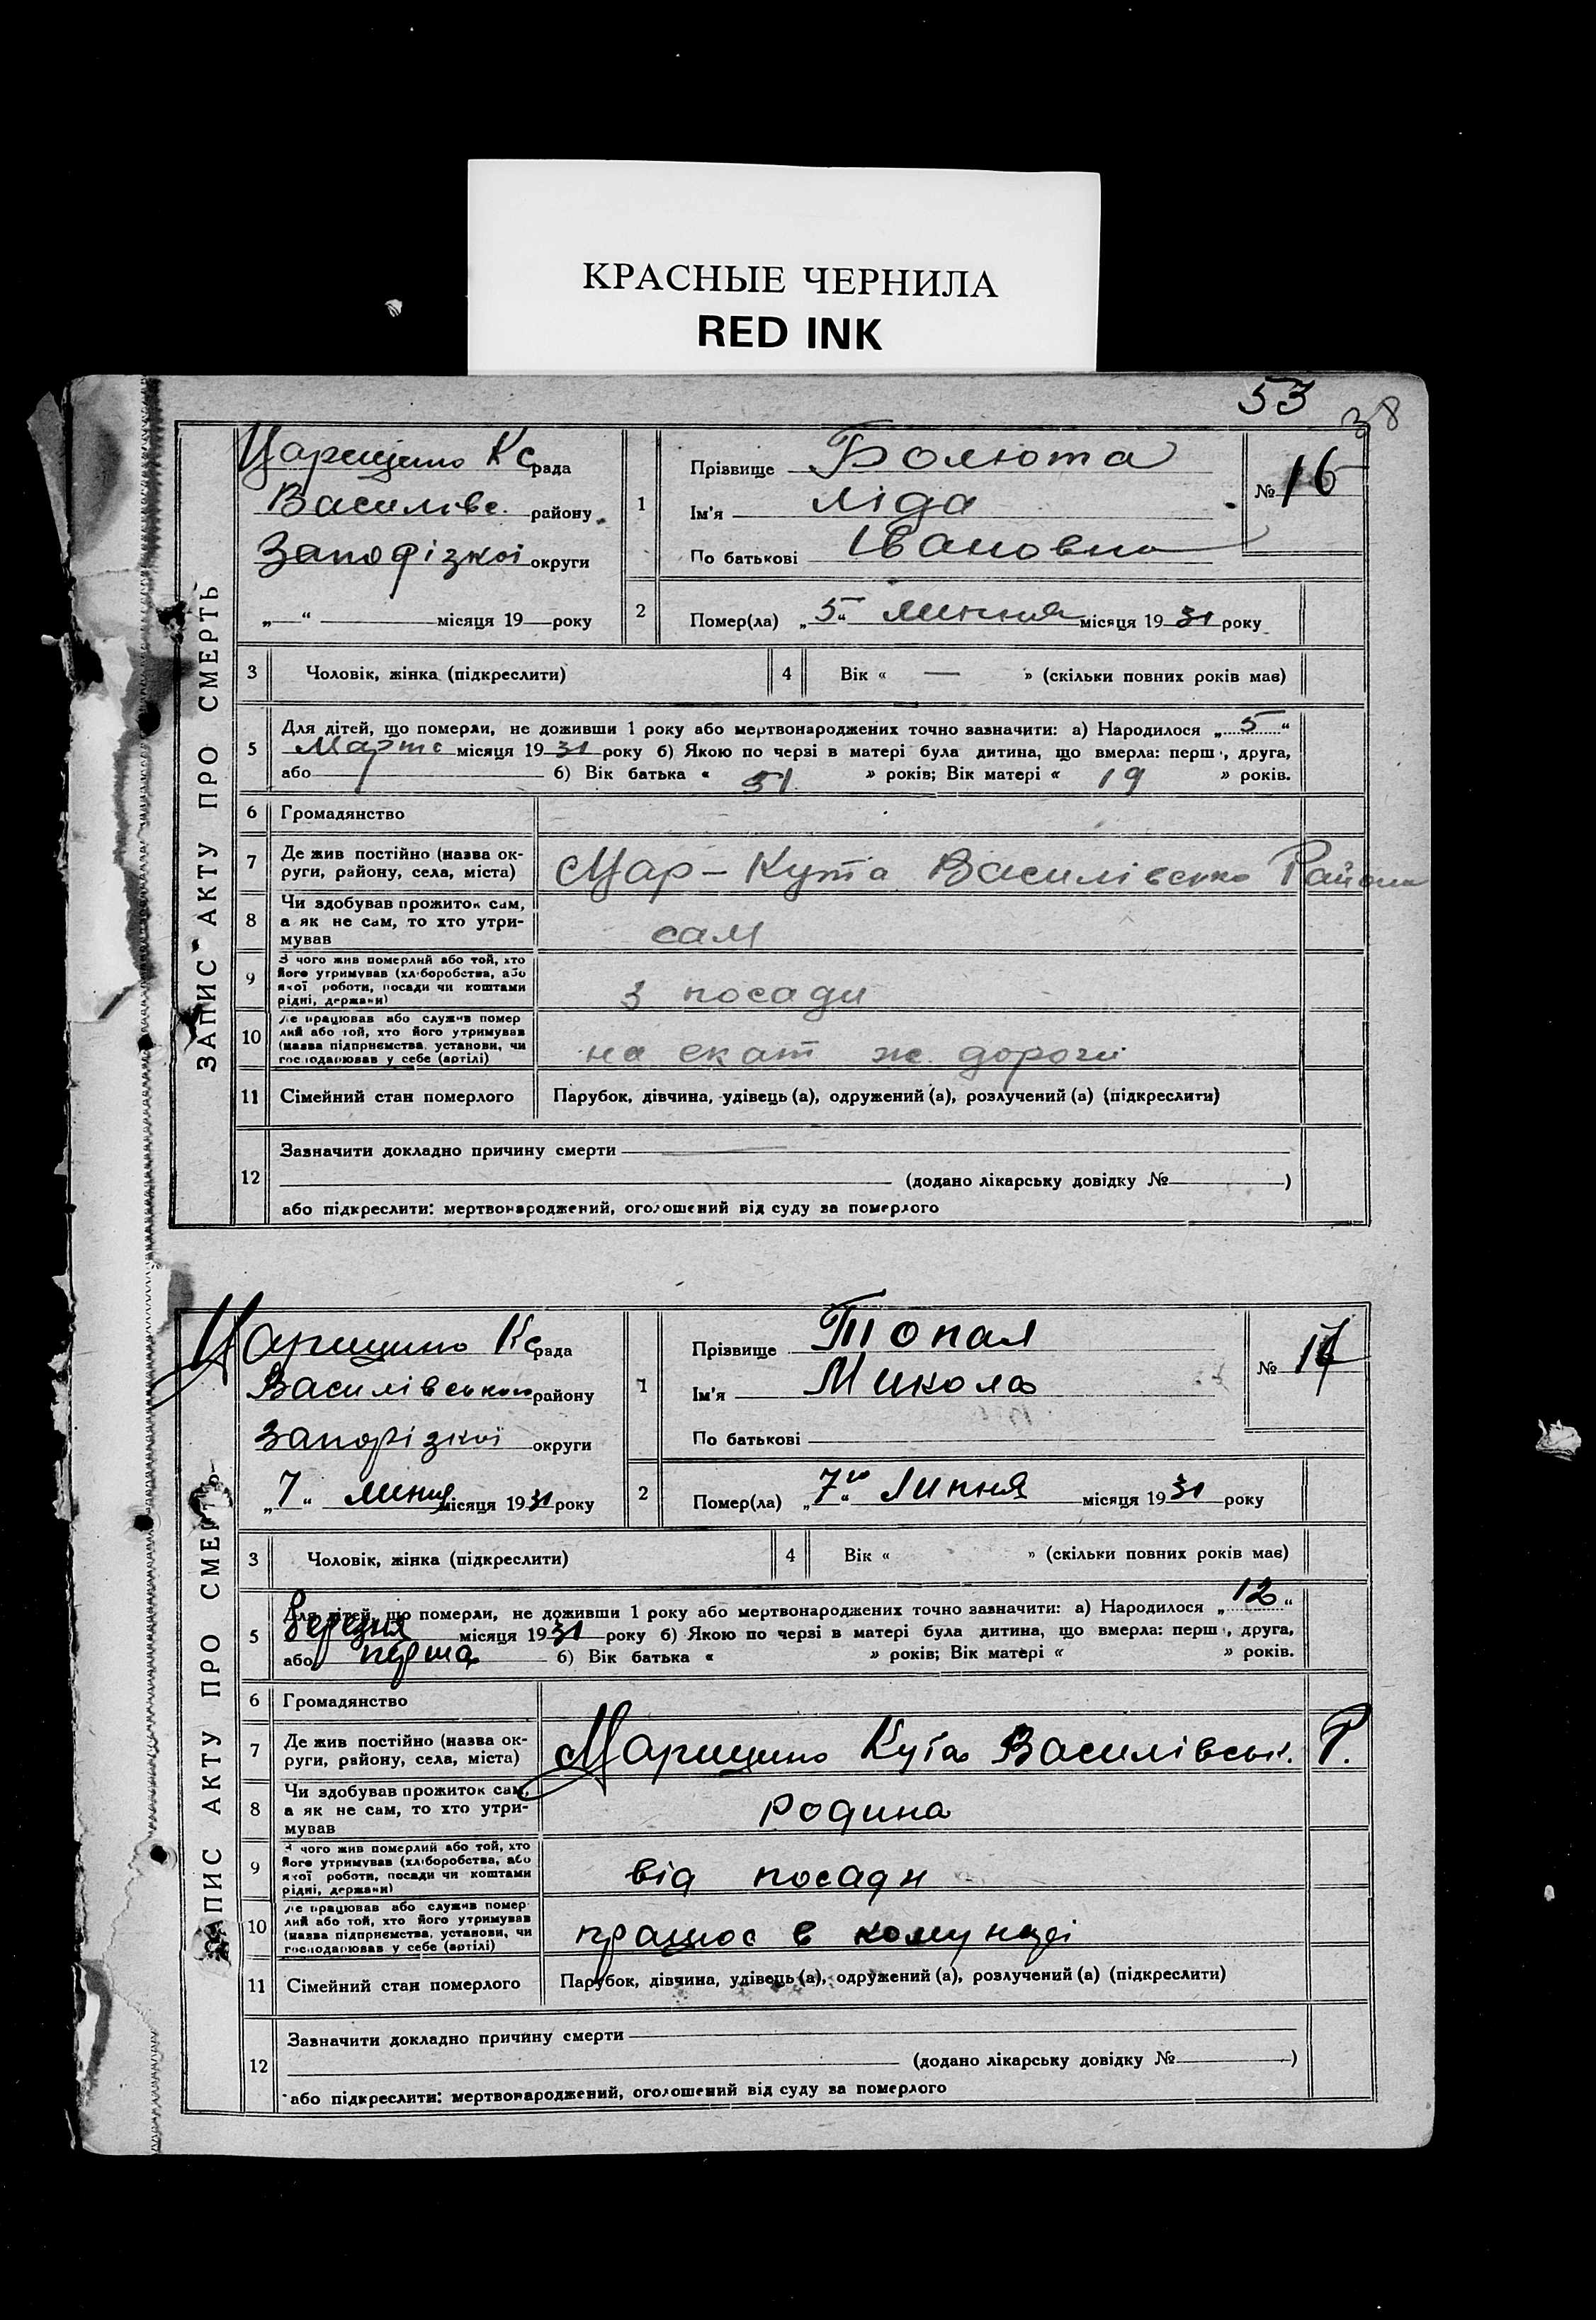 КРАСНЫЕ ЧЕРНИЛА
RED INK
53
38
ЗАПИС АКТУ ПРО СМЕРТЬ
Царицино Кс рада
Василівс. району
Запорізкої округи
„ “ місяця 19 року
1
Прізвище Болюта
Ім'я Ліда
По батькові Івановна
№ 16
2
Помер(ла) „5“ липня місяця 1931 року
3 Чоловік, жінка (підкреслити)
4 Вік « — » (скільки повних років має)
5
Для дітей, що померли, не доживши 1 року або мертвонароджених точно зазначити: а) Народилося „5“
Марта місяця 1931 року б) Якою по черзі в матері була дитина, що вмерла: перш , друга,
або б) Вік батька « 31 » років; Вік матері « 19 » років.
6 Громадянство
7 Де жив постійно (назва ок-
руги, району, села, міста)
Цар-Кута Василівсько Района
8 Чи здобував прожиток сам,
а як не сам, то хто утри-
мував
сам
9 З чого жив померлий або той, хто
його утримував (хліборобства, або
якої роботи, посади чи коштами
рідні, держави)
з посади
10 Де працював або служив помер
лий або той, хто його утримував
(назва підприємства, установи, чи
господарював у себе (артілі)
на екат ж. дороги
11 Сімейний стан померлого
Парубок, дівчина, удівець (а), одружений (а), розлучений (а) (підкреслити)
12
Зазначити докладно причину смерти
(додано лікарську довідку № )
або підкреслити: мертвонароджений, оголошений від суду за померлого
ЗАПИС АКТУ ПРО СМЕРТЬ
Царицино Кс рада
Василівського району
Запорізкої округи
„7“ липня місяця 1931 року
1
Прізвище Топал
Ім'я Микола
По батькові
№ 17
2
Помер(ла) „7го“ Липня місяця 1931 року
3 Чоловік, жінка (підкреслити)
4 Вік « » (скільки повних років має)
5
Для дітей, що померли, не доживши 1 року або мертвонароджених точно зазначити: а) Народилося „12“
березня місяця 1931 року б) Якою по черзі в матері була дитина, що вмерла: перш , друга,
або перша б) Вік батька « » років; Вік матері « » років.
6 Громадянство
7 Де жив постійно (назва ок-
руги, району, села, міста)
Царицино Кута Василівськ. Р.
8 Чи здобував прожиток сам,
а як не сам, то хто утри-
мував
родина
9 З чого жив померлий або той, хто
його утримував (хліборобства, або
якої роботи, посади чи коштами
рідні, держави)
від посади
10 Де працював або служив помер
лий або той, хто його утримував
(назва підприємства, установи, чи
господарював у себе (артілі)
працює в комунаді
11 Сімейний стан померлого
Парубок, дівчина, удівець (а), одружений (а), розлучений (а) (підкреслити)
12
Зазначити докладно причину смерти
(додано лікарську довідку № )
або підкреслити: мертвонароджений, оголошений від суду за померлого